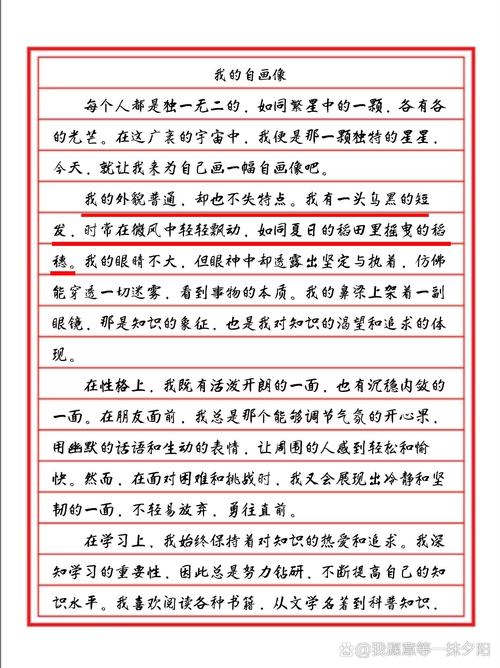 我的自画像
每个人都是独一无二的，如同繁星中的一颗，各有各
的光芒。在这广袤的宇宙中，我便是那一颗独特的星星，
今天，就让我来为自己画一幅自画像吧。
我的外貌普通，却也不失特点。我有一头乌黑的短
发，时常在微风中轻轻飘动，如同夏日的稻田里摇曳的稻
穗。我的眼睛不大，但眼神中却透露出坚定与执着，仿佛
能穿透一切迷雾，看到事物的本质。我的鼻梁上架着一副
眼镜，那是知识的象征，也是我对知识的渴望和追求的体
现。
在性格上，我既有活泼开朗的一面，也有沉稳内敛的
一面。在朋友面前，我总是那个能够调节气氛的开心果，
用幽默的话语和生动的表情，让周围的人感到轻松和愉
快。然而，在面对困难和挑战时，我又会展现出冷静和坚
韧的一面，不轻易放弃，勇往直前。
在学习上，我始终保持着对知识的热爱和追求。我深
知学习的重要性，因此总是努力钻研，不断提高自己的知
识水平。我喜欢阅读各种书籍，从文学名著到科普知识，
@我愿意等一抹夕阳